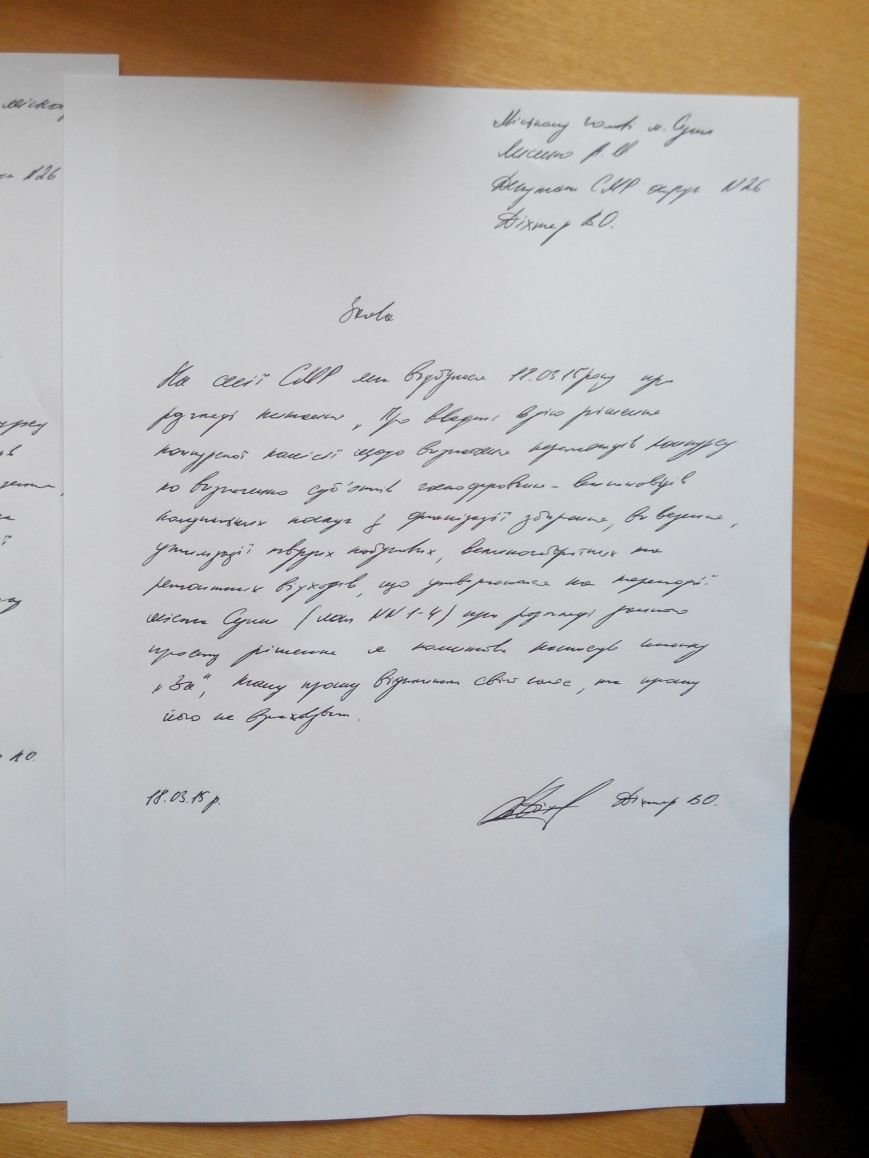 міськ
N26
Міському голові м. Суми
Лисенко О. М
Депутат СМР округ N26
Діхтяр В.О.
Заява
На сесії СМР яка відбулася 18.03.15 року при
розгляді питання „Про введені в дію рішення
конкурсної комісії щодо визначення переможців конкурсу
по визначенню суб'єктів господарювання – виконавців
комунальних послуг з організації збирання, вивезення,
утилізації твердих побутових, великогабаритних та
ремонтних відходів, що утворюються на території
міста Суми (лот NN 1-4) при розгляді даного
проекту рішення я помилково натиснув кнопку
„За", тому прошу відкликати свій голос, та прошу
його не враховувати.
18.03.15 р.
Діхтяр В.О.